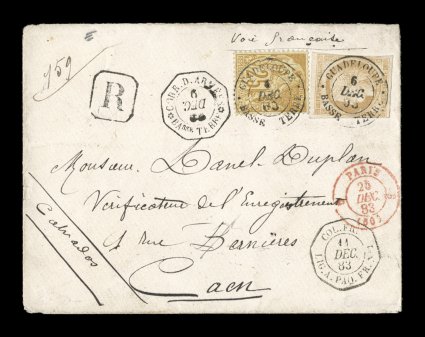 Voie française
159
R
CORR. D. ARMÉES
6
DEC
83
BASSE TERRE
GUADELOUPE
6
DEC.
83
BASSE TERRE
GUADELOUPE
6
DEC.
83
BASSE TERRE
Monsieur Danel Duplan
Vérificateur de l'Enregistrement
1 rue Bernières
Caen
Calvados
PARIS
25
DEC.
83
COL. FR.
11
DEC.
83
LIG. A. PAQ. FR.